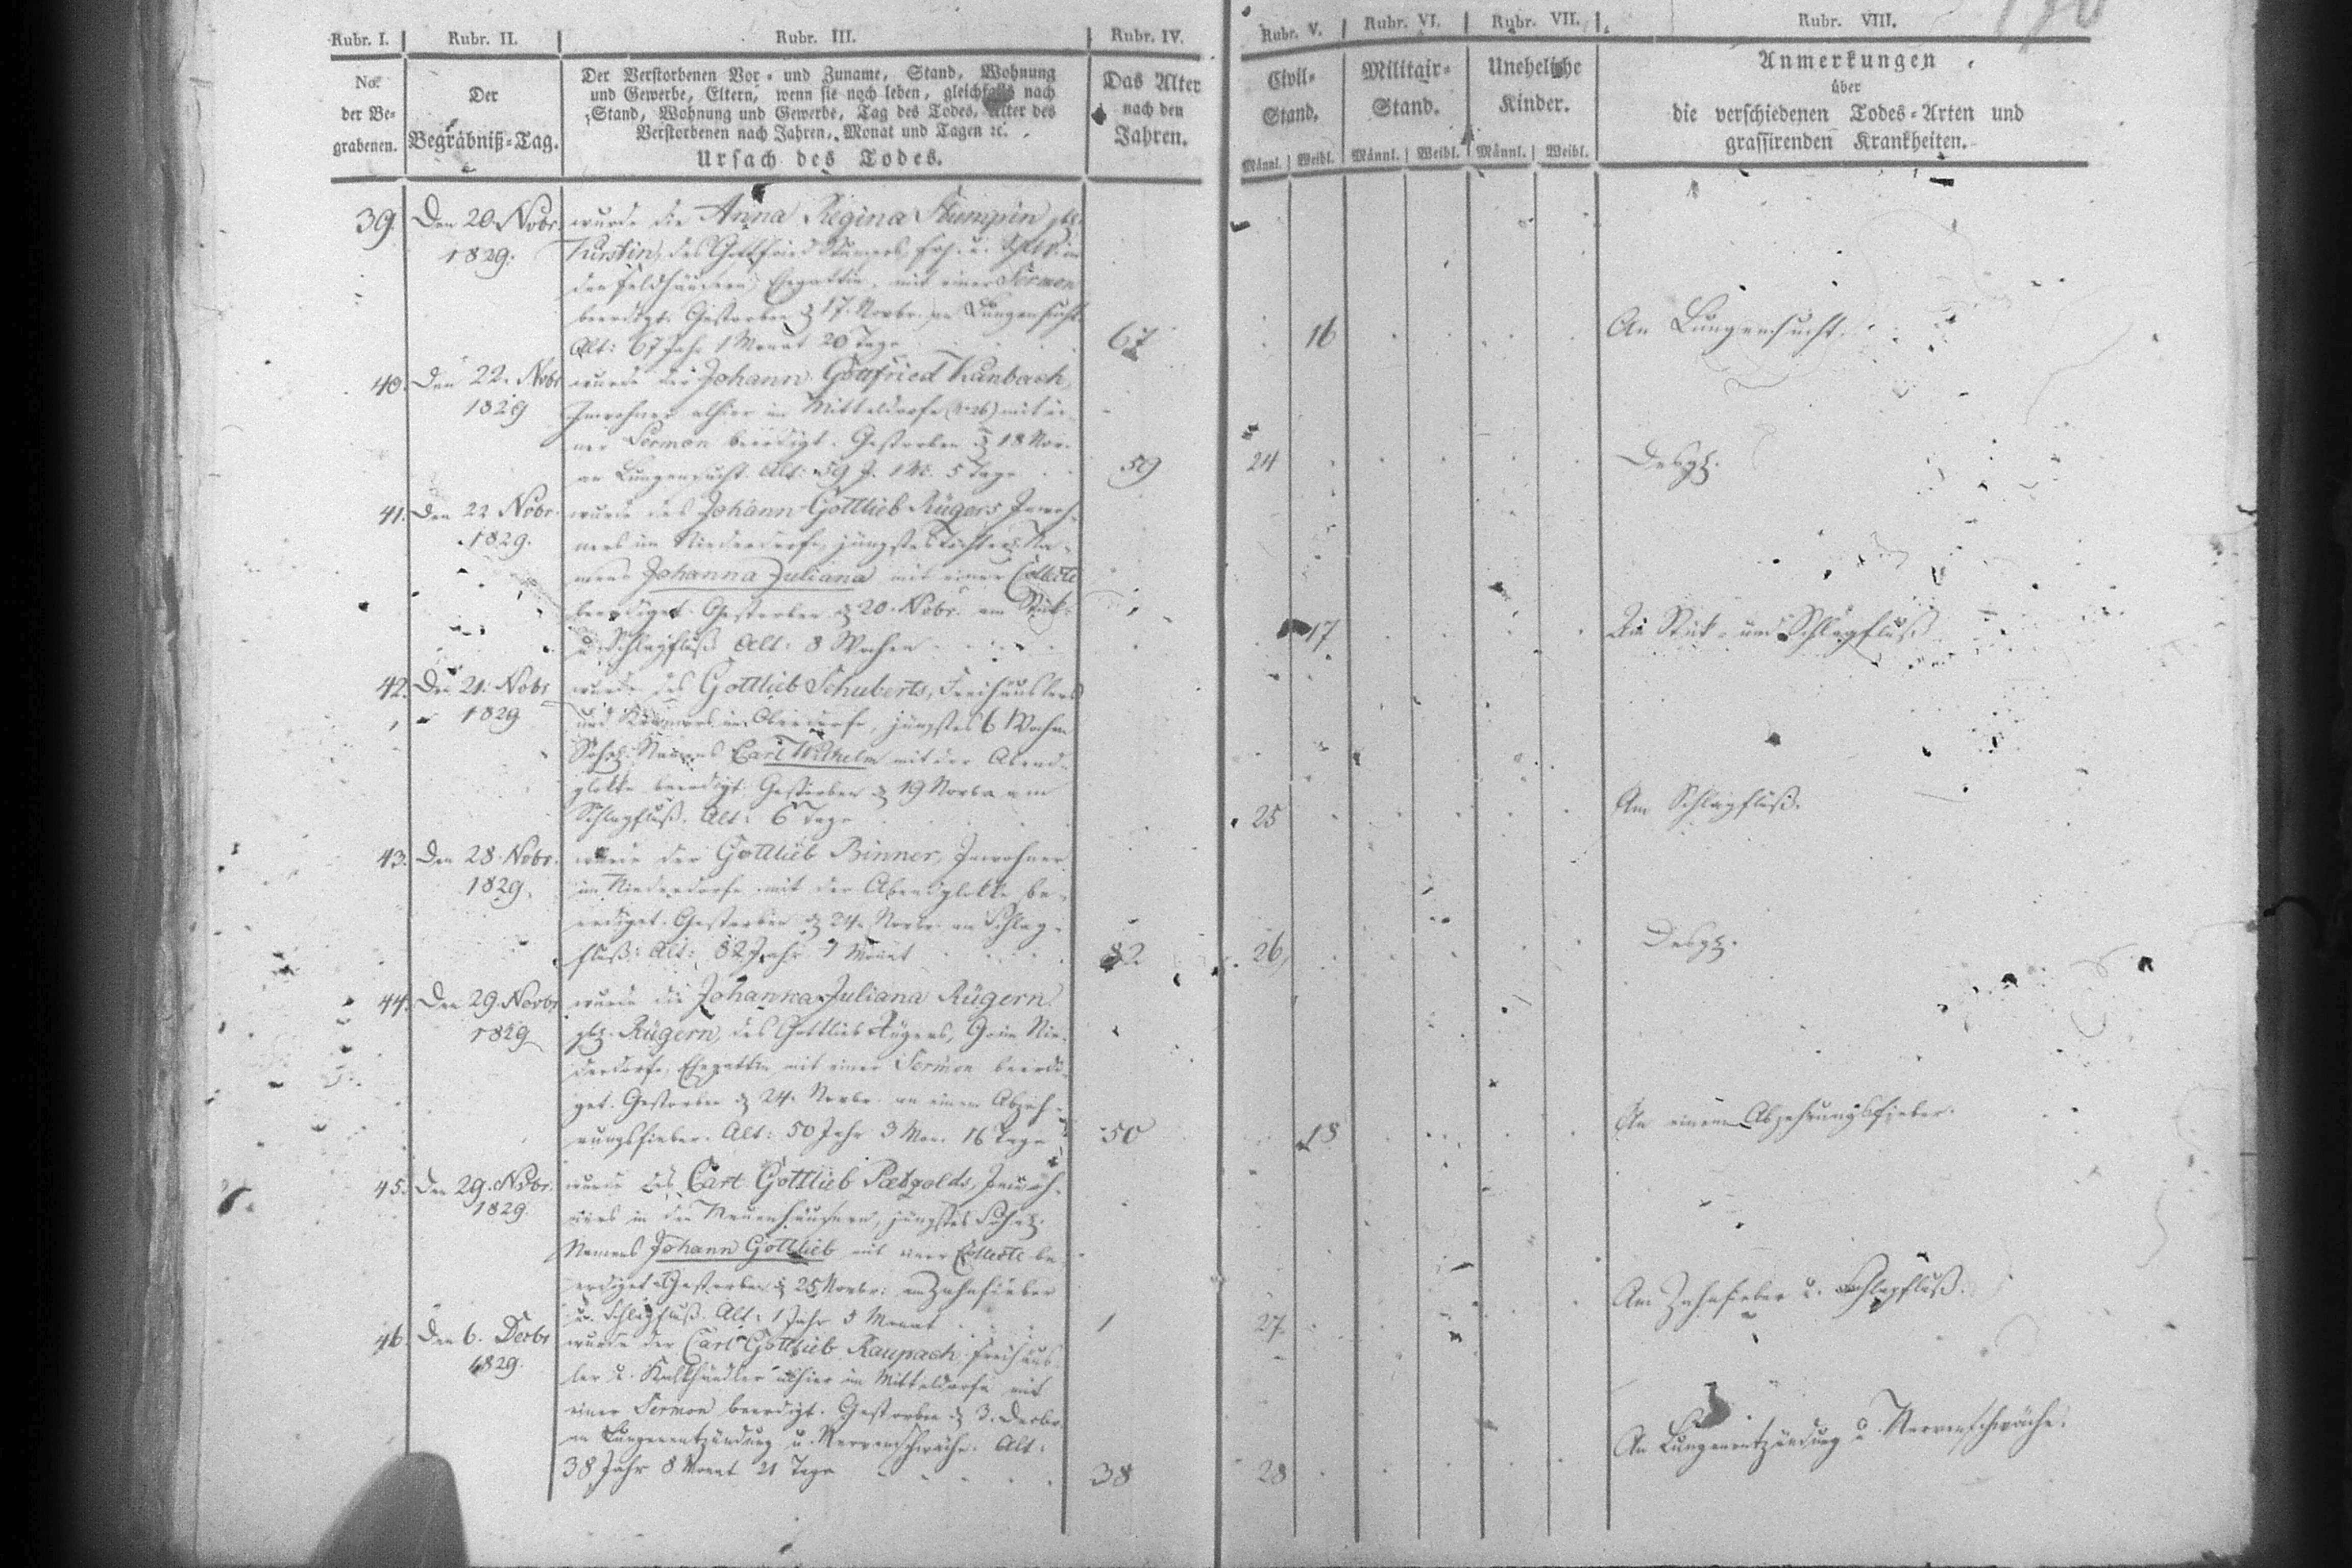 Rubr. I. Rubr. II. Rubr. III. Rubr. IV. Rubr. V. Rubr. VI. Rubr. VII. Rubr. VIII.
No.
der Be-
grabenen.
Der
Begräbniß-Tag.
Der Verstorbenen Vor- und Zuname, Stand, Wohnung
und Gewerbe, Eltern, wenn sie noch leben, gleichfalls nach
Stand, Wohnung und Gewerbe, Tag des Todes, Alter des
Verstorbenen nach Jahren, Monat und Tagen ꝛc.
Ursach des Todes.
Das Alter
nach den
Jahren.
Civil-
Stand.
Männl. Weibl.
Militair-
Stand.
Männl. Weibl.
Uneheliche
Kinder.
Männl. Weibl.
Anmerkungen
über
die verschiedenen Todes-Arten und
grassirenden Krankheiten.
39. Den 20. Nobr.
1829.
wurde die Anna Regina
des Gottfried
Ehegattin, mit einer Sermon
beerdigt. Gestorben d. 17. Novbr. an Lungensucht.
Alt: 67 Jahr 1 Monat 20 Tage
67
16
An Lungensucht.
40. Den 22. Nobr
1829
wurde der Johann Gottfried
Inwohner alhier im Mitteldorfe mit ei-
ner Sermon beerdigt. Gestorben d. 18 Nov.
an Lungensucht. Alt: 59 J. 1 M. 5 Tage
59
24
Desgl.
41. Den 22 Nobr.
1829.
wurde des Johann Gottlieb Rügers, Inwoh-
ners im Niederdorfe, jüngstes Töchterl. Na-
mens Johanna Juliana mit einer Collecte
beerdiget. Gestorben d. 20. Nobr. am Stick-
u. Schlagfluß. Alt: 8 Wochen
17
Am Stick- und Schlagfluß.
42. Den 21. Nobr
1829
wurde des Gottlieb Schuberts, Freihäuslers
und im Oberdorfe, jüngstes
Söhnl. Namens Carl Wilhelm mit der Abend-
glokke beerdigt. Gestorben d. 19 Novbr am
Schlagfluß. Alt: 6 Tage
25
Am Schlagfluß.
43. Den 28. Nobr.
1829.
wurde der Gottlieb Binner, Inwohner
im Niederdorfe mit der Abendglokke be-
erdiget. Gestorben d. 24. Novbr. am Schlag-
fluß. Alt: 82 Jahr Monat
82.
26,
Desgl.
44. Den 29. Novbr
1829
wurde die Johanna Juliana Rügern
geb. Rügern, des Gottlieb Rügers, im Nie-
derdorfe, Ehegattin mit einer Sermon beerdi-
get. Gestorben d. 24. Novbr. an einem Abzeh-
rungsfieber. Alt: 50 Jahr 3 Mon. 16 Tage
50
18
An einem Abzehrungsfieber.
45. Den 29. Nobr.
1829.
wurde des Carl Gottlieb Paetzolds, Inwoh-
ners in den Neuenhäusern, jüngstes Söhnl.
Namens Johann Gottlieb mit einer Collecte be-
erdiget. Gestorben d. 25 Novbr. am Zahnfieber
u. Schlagfluß. Alt: 1 Jahr 5 Monat
1
27.
Am Zahnfieber u. Schlagfluß.
46. Den 6. Decbr
1829.
wurde der Carl Gottlieb Raupach, Freihäus-
ler u. alhier im Mitteldorfe mit
einer Sermon beerdigt. Gestorben d. 3. Decbr.
an Lungenentzündung u. Nervenschwäche. Alt:
38 Jahr 8 Monat 21 Tage
38
28
An Lungenentzündung u. Nervenschwäche.